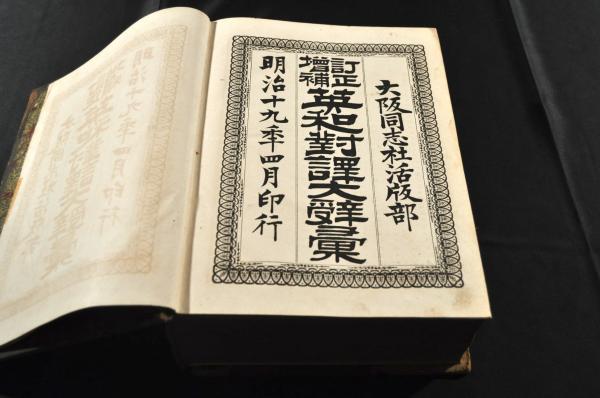 大阪同志社活版部
訂正增補英和對譯大辭彙
明治十九年四月印行